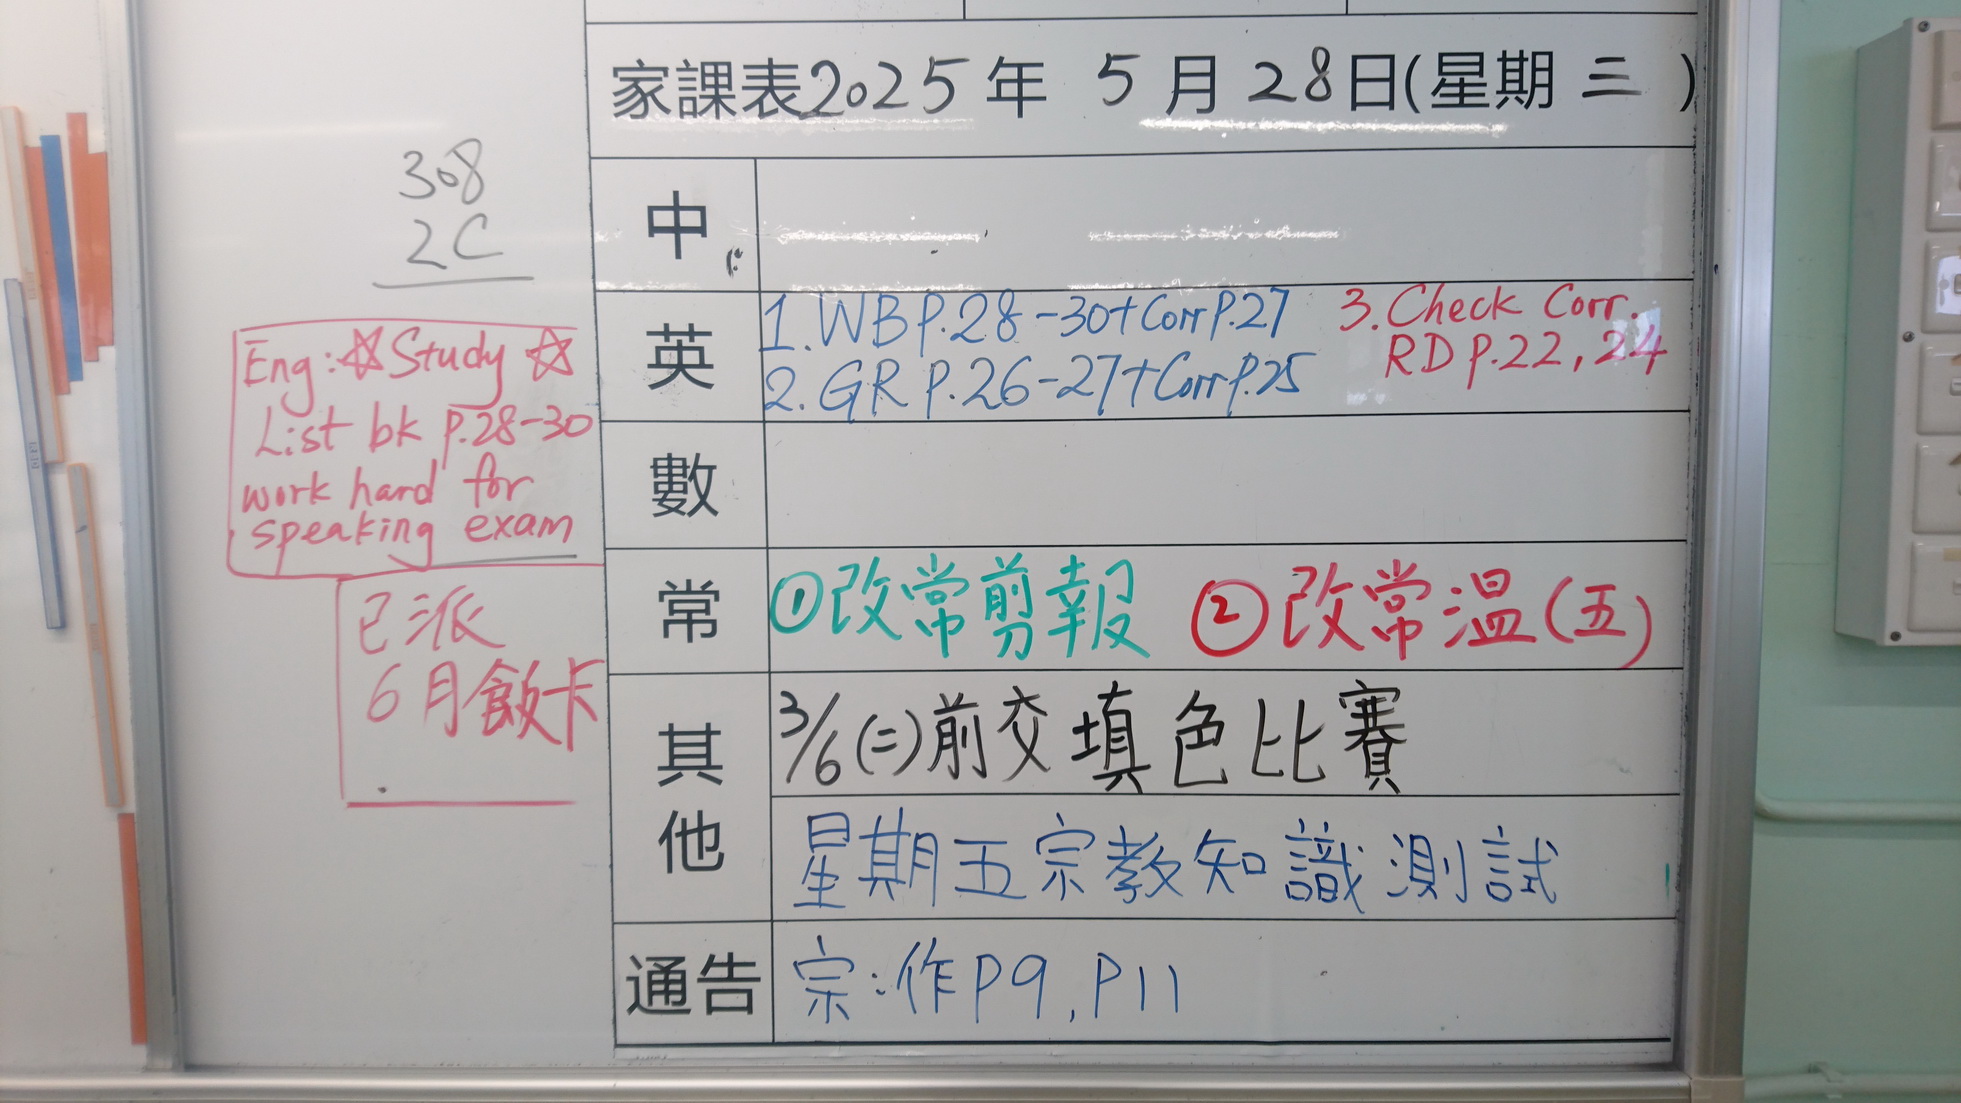 家課表2025年 5月28日(星期三)
308
2C
中
英
1. WB P.28-30+Corr P.27
2. GR P.26-27+Corr P.25
3. Check Corr.
RD P.22, 24
Eng: ☆Study☆
List bk p.28-30
work hard for
speaking exam
數
常
①改常剪報 ②改常温(五)
已派
6月飯卡
其他
3/6(二)前交填色比賽
星期五宗教知識測試
通告
宗:作P9, P11